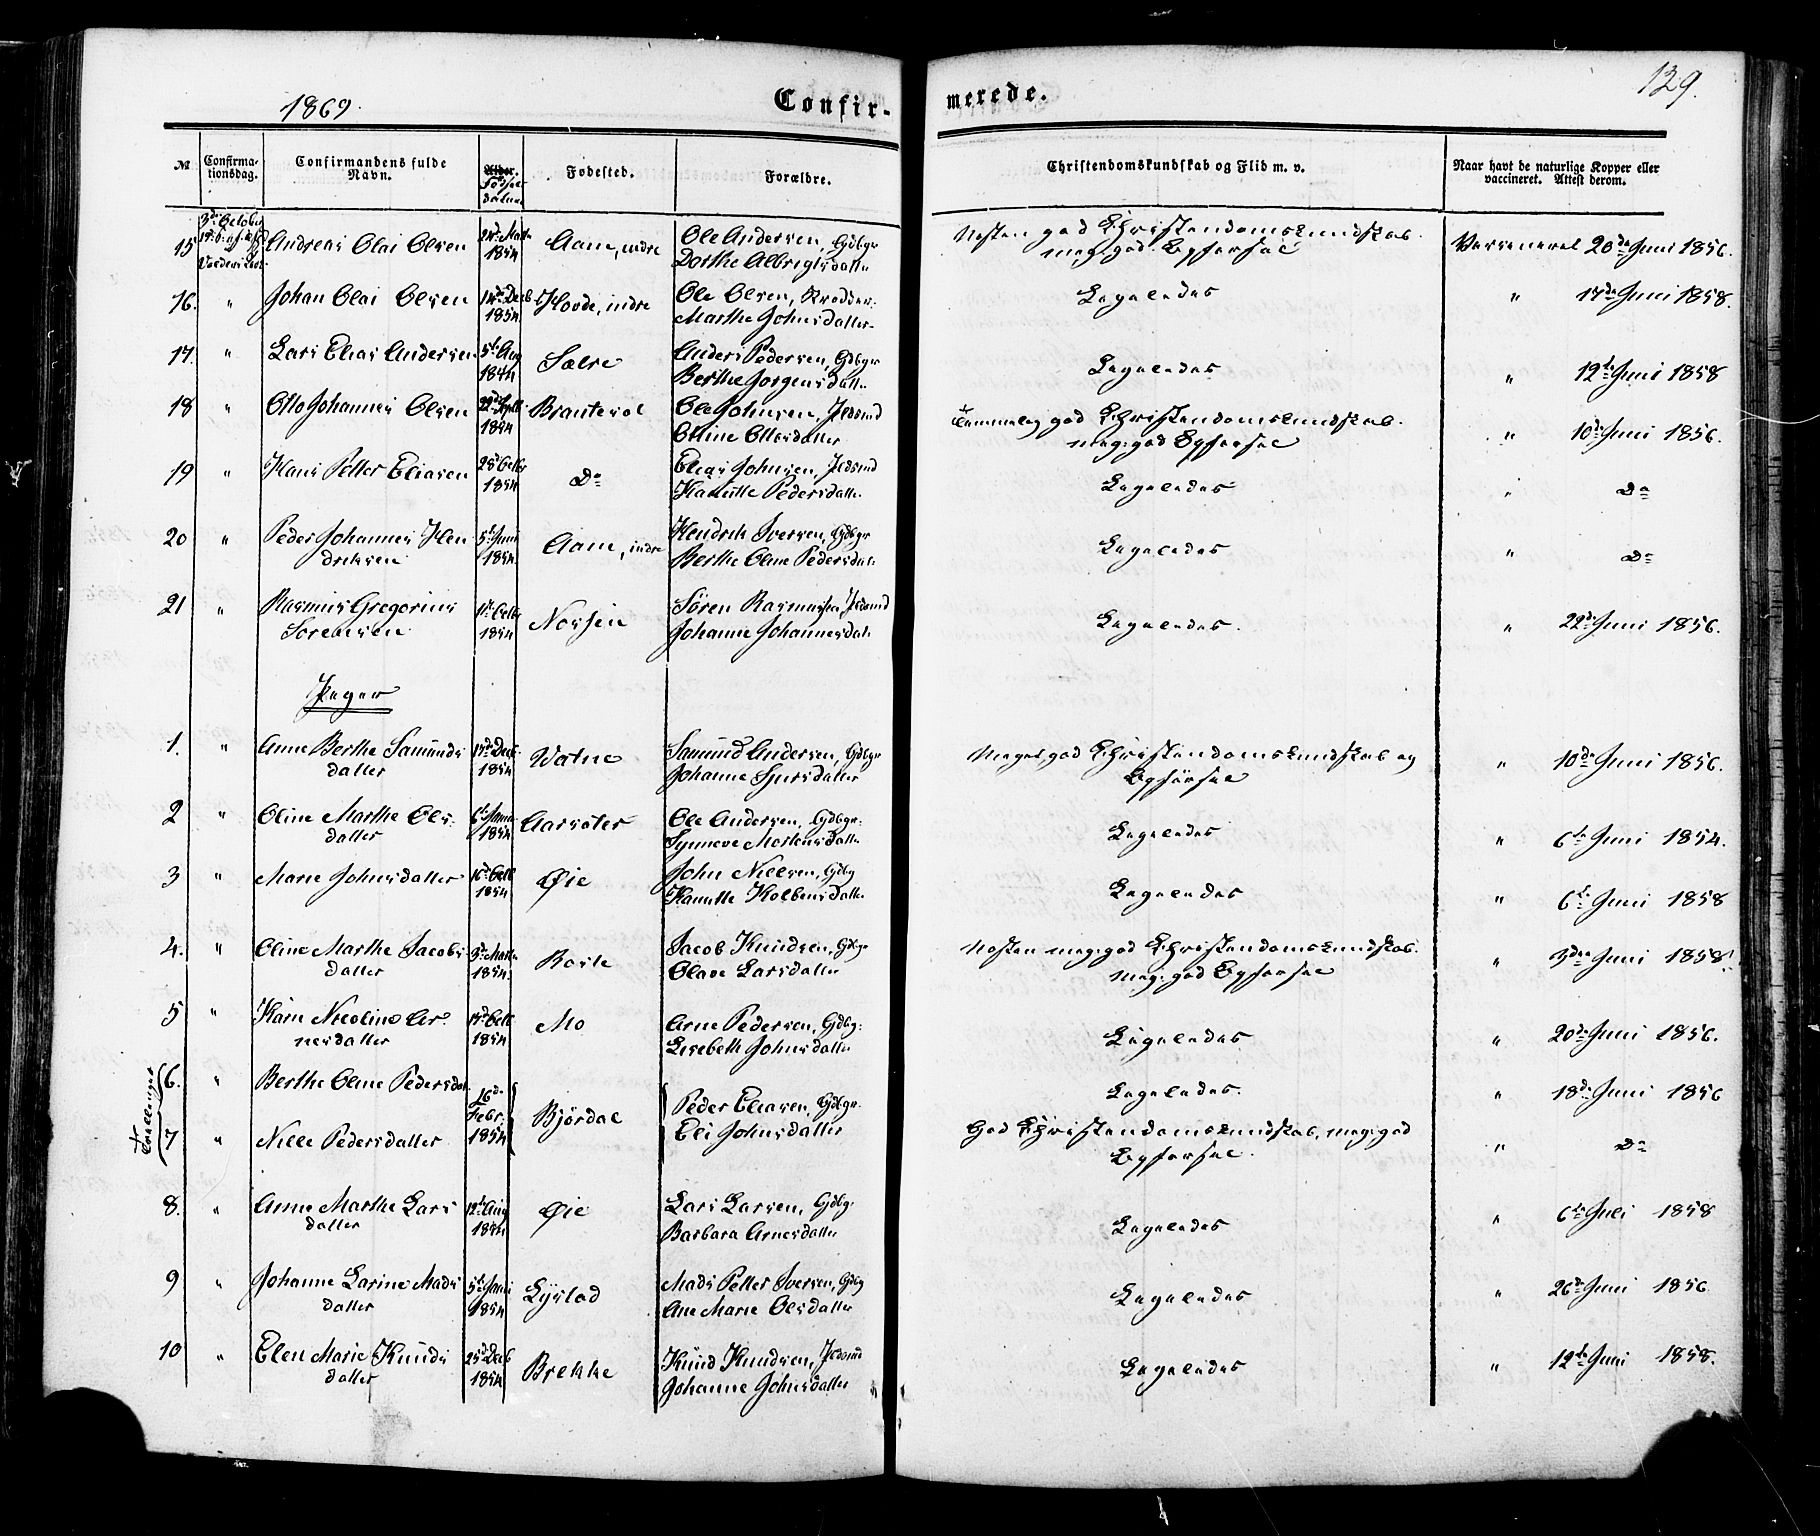 1869.
Confir-
merede.
129.
№
Confirma-
tionsdag.
Confirmandens fulde
Navn.
Alder.
Fødsels
datum
Fødested.
Forældre.
Christendomskundskab og Flid m. v.
Naar havt de naturlige Kopper eller
vaccineret. Attest derom.
15 3die October Andreas Olai Olsen 1854 Aam, indre Ole Andersen, Gdbgr
Dorthe Albrigtsdatter
Næsten god Christendomskundskab.
meg: god Opførsel
Vaccineret 20de Juni 1856.
16. " Johan Olai Olsen 14de Decb 1854 Hovde, indre Ole Olsen,
Marthe Johnsdatter
Ligeledes " 17de Juni 1858.
17. " Lars Elias Andersen 5te Aug 1854 Sætre Anders Pedersen, Gdbgr
Berthe Jørgensdatter
Ligeledes " 12te Juni 1858
18 " Otto Johannes Olsen 22de Septb 1854 Brautesæt Ole Johnsen, Inds
Oline Ottosdatter
Temmelig god Christendomskundskab.
meg: god Opførsel
" 10de Juni 1856.
19 " Hans Petter Eliasen 1854 Do Elias Johnsen,
Pedersdatter
Ligeledes " Do
20 " Peder Johannes Hen
driksen 5te Juni 1854. Aam, indre Hendrik Iversen, Gdbgr
Berthe Oline Pedersdatt:
Ligeledes " Do
21 " Rasmus Gregorius
Sørensen 1854 Søren Rasmussen
Johanne Johannesdatt:
Ligeledes. " 22de Juni 1856.
Piger
1. " Anne Berthe Samunds
datter 1854 Vatne Samund Andersen, Gdbgr
Johanne Sjursdatter
Meget god Christendomskundskab og
Opførsel
" 10de Juni 1856.
2 " Oline Marthe Ols-
datter 1854 Aarsæter Ole Andersen, Gdbgr:
Synneve Mortensdatter
Ligeledes " 6te Juni 1854.
3 " Marie Johnsdatter 16de Octb 1854 Øie John Nilsen, Gdbg
Hanna Kolbensdatter
Ligeledes " 6te Juni 1858
4. " Oline Marthe Jacobs
datter 3die 1854. Jacob Knudsen, Gdbgr
Olave Larsdatter
Næsten meg: god Christendomskundskab.
meg: god Opførsel
" 3die Juni 1858.
5 " Karn Nicoline Ar-
nesdatter 1854 Mo Arne Pedersen, Gdbg:
Lisebeth Johnsdatter
Ligeledes " 20de Juni 1856.
Tvillinger
6. " Berthe Oline Pedersdat.
16de
Febr.
1854
Bjørdal
Peder Eliasen, Gdbgr.
Eli Johnsdatter
Ligeledes. " 18de Juni 1856
7 " Nille Pedersdatter
God Christendomskundskab, meg: god
Opførsel.
" Do
8. " Anne Marthe Lars
datter 12te Aug 1854 Øie Lars Larsen, Gdbg:
Barbara Arnesdatter
Ligeledes " 6te Juli 1858
9 " Johanne Larine Mads
datter 5te Juni 1854 Lystad Mads Petter Iversen, Gdbg
Ane Marie Olsdatter
Ligeledes " 26de Juni 1856
10 " Elen Marie Knuds
datter 25de Decb 1854 Brekke Knud Knudsen,
Johanne Johnsdatter
Ligeledes " 12te Juni 1858.